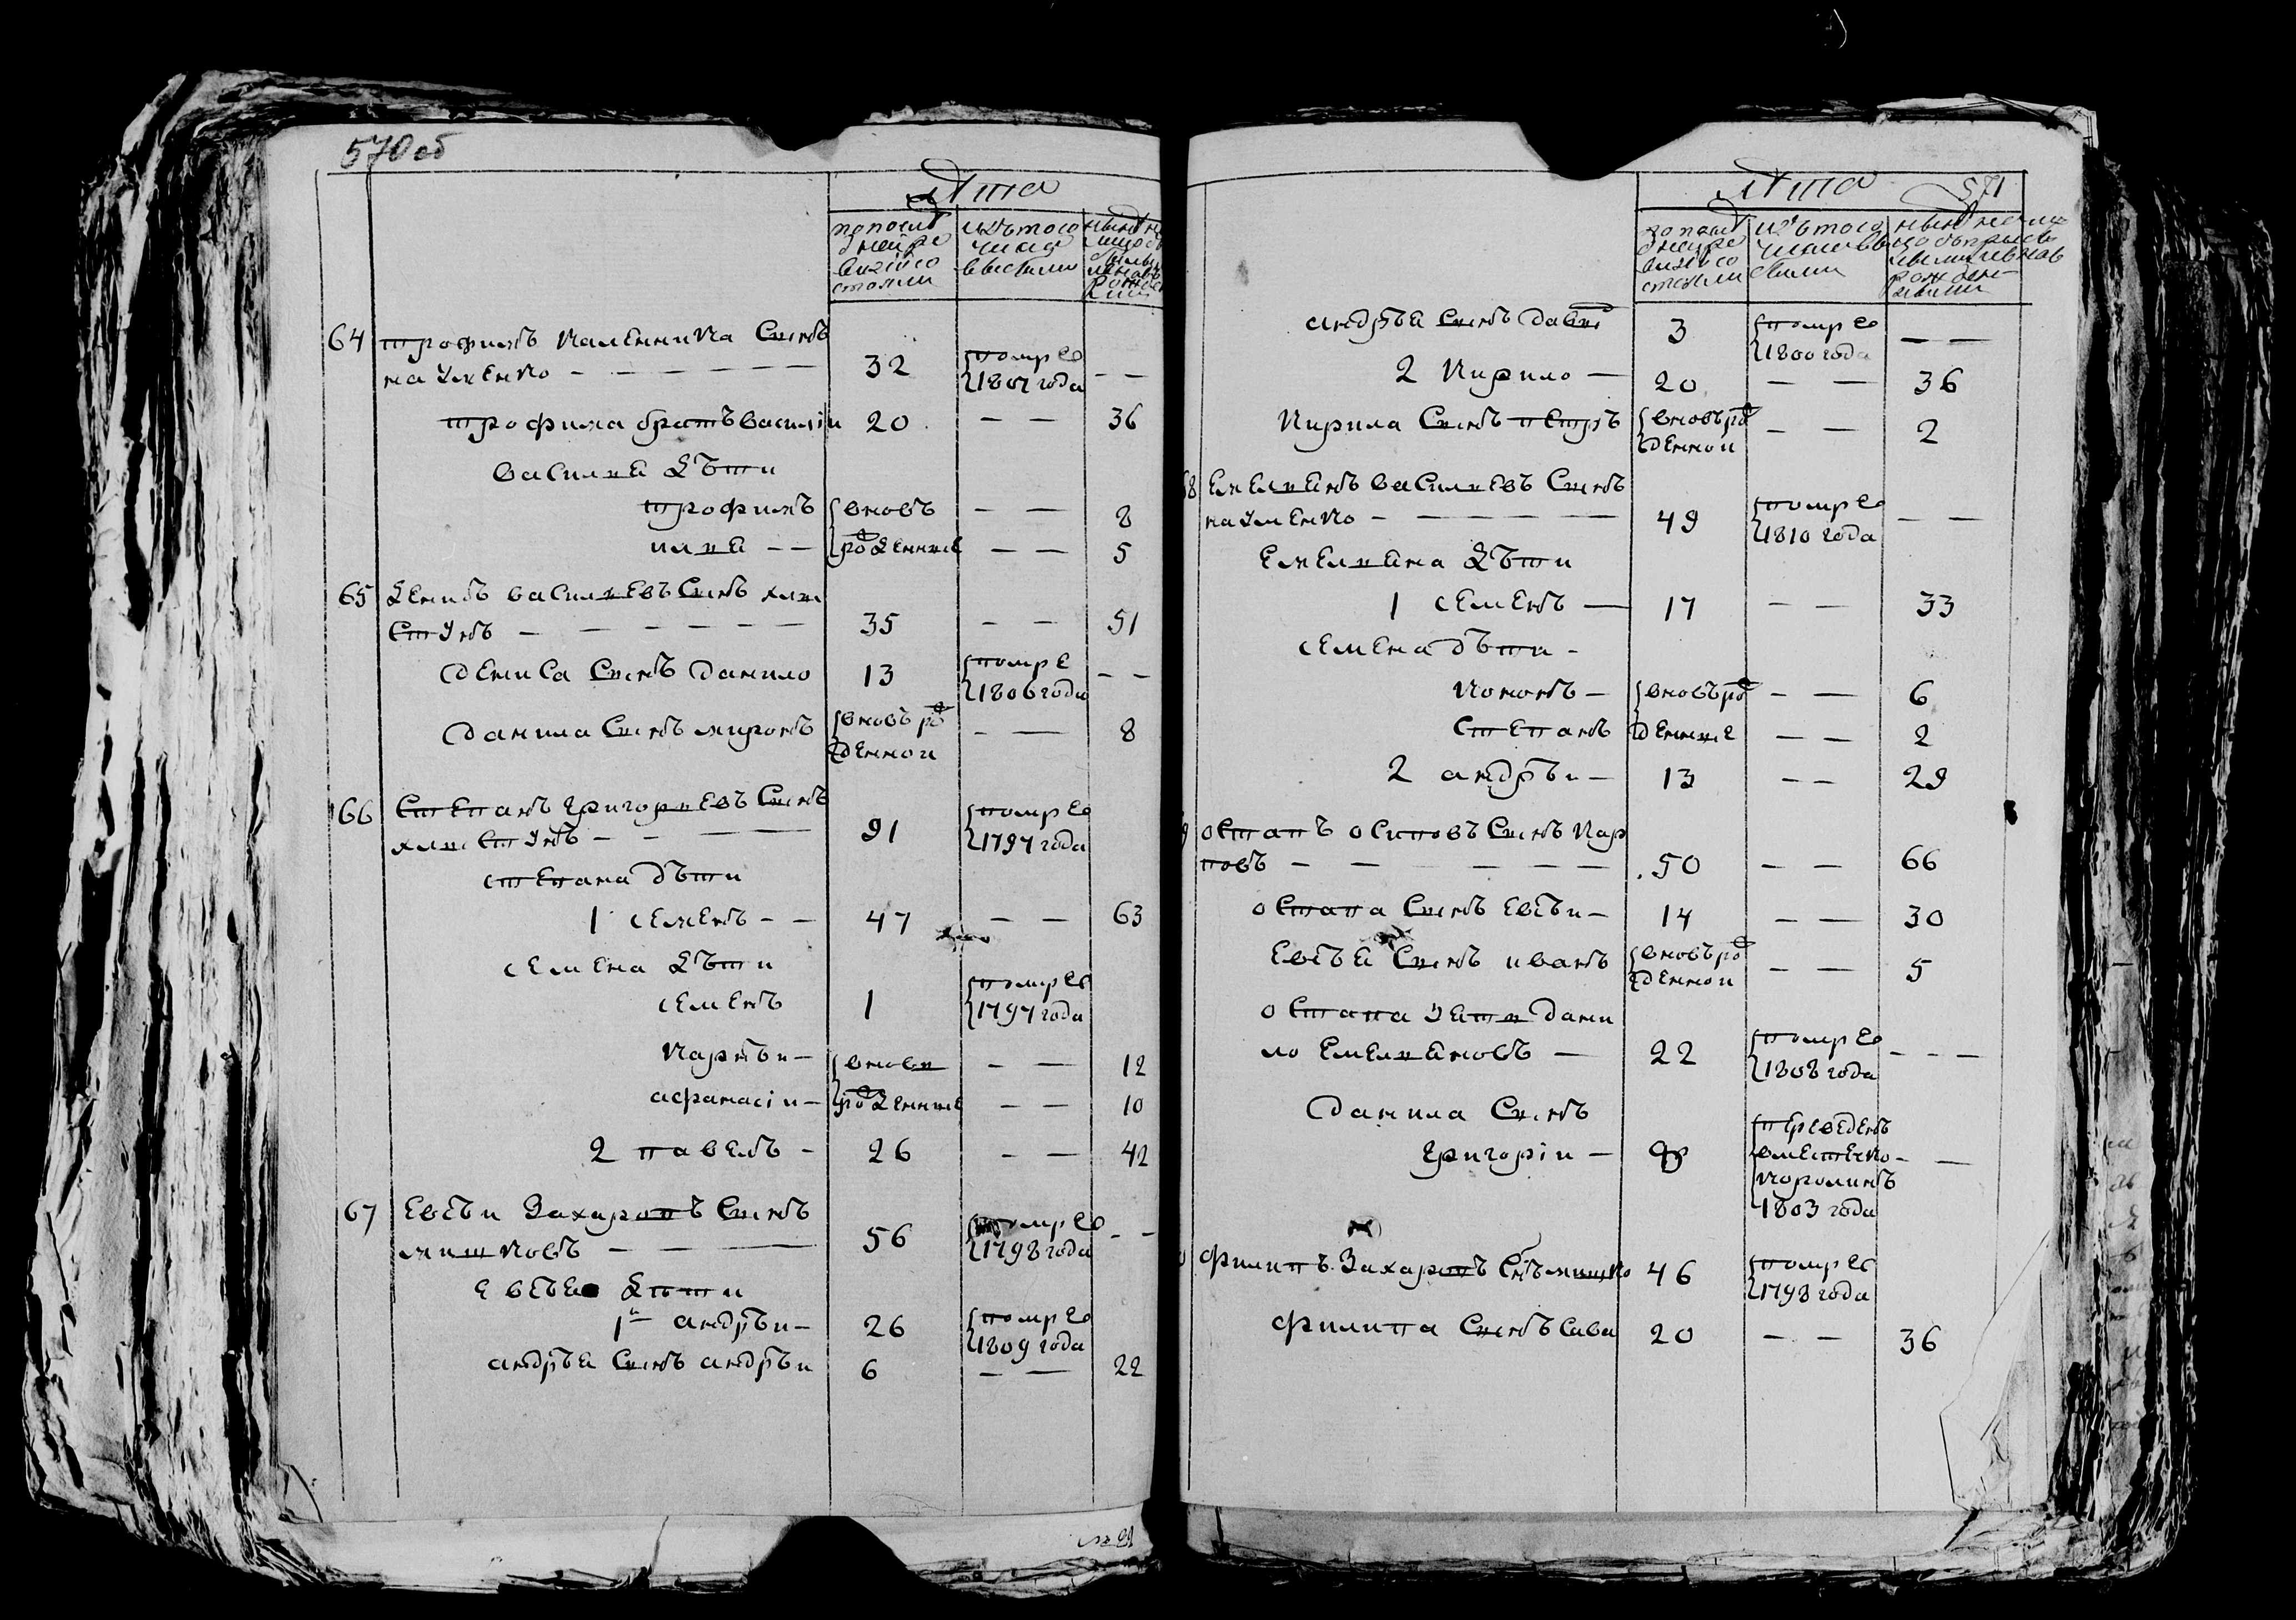 570 об
Лѣта
по послѣ
дней ре
визіи со
стояли
изъ того
числа
выбыли
64 трофимъ каленника Сынъ
науменко - - - - - - 32 помре 1807 года - -
трофима братъ василій 20 - - 36
василия дѣти
трофимъ вновь - - 8
илия - - рожденные - - 5
65 денисъ василиевъ Сынъ хлы
стунъ - - - - - - 35 - - 51
дениса Сынъ данило 13 помре 1806 года - -
данила Сынъ миронъ вновь рож
денной - - 8
66 Степанъ григориевъ Сынъ
хлыстунъ - - - - 91 помре 1797 года
степана дѣти
1 семенъ - - 47 - - 63
семена дѣти
семенъ 1 помре 1797 года
карпѣй - вновь - - 12
афанасій - рожденные - - 10
2 павелъ - 26 - - 42
67 Евсѣй Захаровъ Сынъ
мишковъ - - - 56 помре 1798 года - -
Евсѣя дѣти
1й андрѣй - 26 помре 1809 года
андрѣя Сынъ андрѣй 6 - - 22
Лѣта 571
по послѣ
дней ре
визіи со
стояли
изъ того
числа вы
были
андрѣя Сынъ давид 3 помре 1800 года - -
2 кирило - 20 - - 36
кирила Сынъ петръ вновь рож
денной - - 2
8 Емелианъ василиевъ Сынъ
науменко - - - - 49 помре 1810 года - -
Емелиана дѣти
1 семенъ - 17 - - 33
семена дѣти -
кононъ - вновь рож - - 6
Степанъ денные - - 2
2 андрѣй - 13 - - 29
9 остапъ осиповъ Сынъ кар
повъ - - - - - 50 - - 66
остапа Сынъ Евсѣй - 14 - - 30
Евсѣя Сынъ иванъ вновь рож
денной - - 5
остапа зять дани
ло Емелиановъ - 22 помре 1808 года - - -
данила Сынъ
григорій - переведенъ
в местечко - -
1803 года
филипъ Захаровъ Сынъ мишко 46 помре 1798 года
филипа Сынъ Сава 20 - - 36